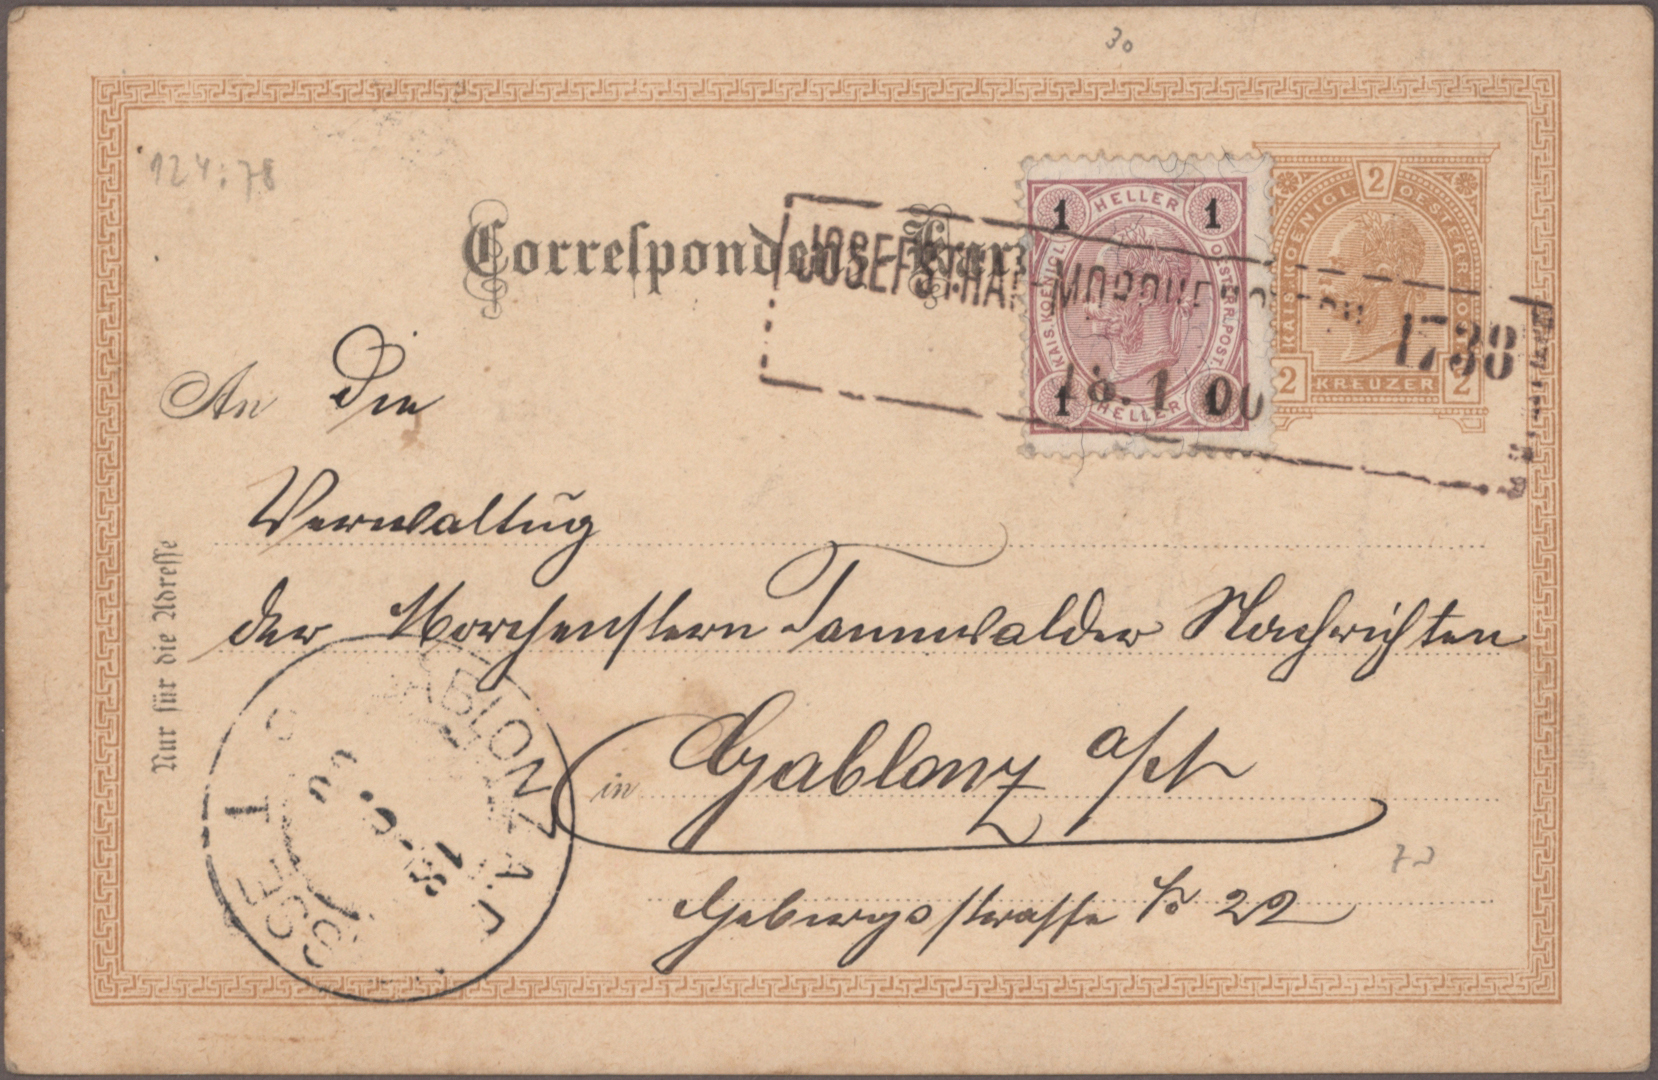 30
124:78
Correspondenz-Karte
1 HELLER 1
KAIS. KOENIGL. OESTERR. POST.
1 HELLER 1
2
KAIS. KOENIGL. OESTERR. POST
2 KREUZER 2
JOSEFSTHAL-MORCHENSTERN 1738
18. 1 00
An Die
Verwaltūg
der Morchenstern Tannwalder Nachrichten
in Gablonz a/N
Gebirgsstrasse No 22
Nur für die Adresse
GABLONZ A.